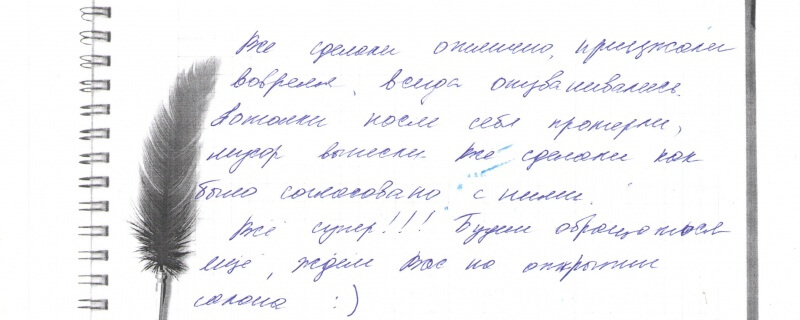 Всё сделали отлично, приезжали
вовремя, всегда отзванивались.
Потолки после себя протерли,
мусор вынесли. Всё сделали как
было согласовано с ними.
Всё супер!!! Будем обращаться
ещё, ждем Вас на открытии
салона :)